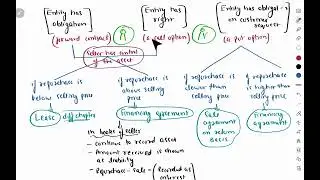 Entity has obligation
(forward contract)
R
Entity has right
(a call option)
R
Entity has obligat-n on customer request
(a put option)
Seller has control of the asset
if repurchase is below selling price
Lease diff chapter
if repurchase is above selling price
Financing agreement
in books of seller
- continue to record asset
- Amount received is shown as liability
- Repurchase - Sale - (Recorded as interest
if repurchase is lower than selling price
Sale agreement on return basis
if repurchase is higher than selling price
Financing agreement